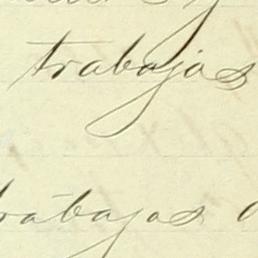 trabajas
trabajas